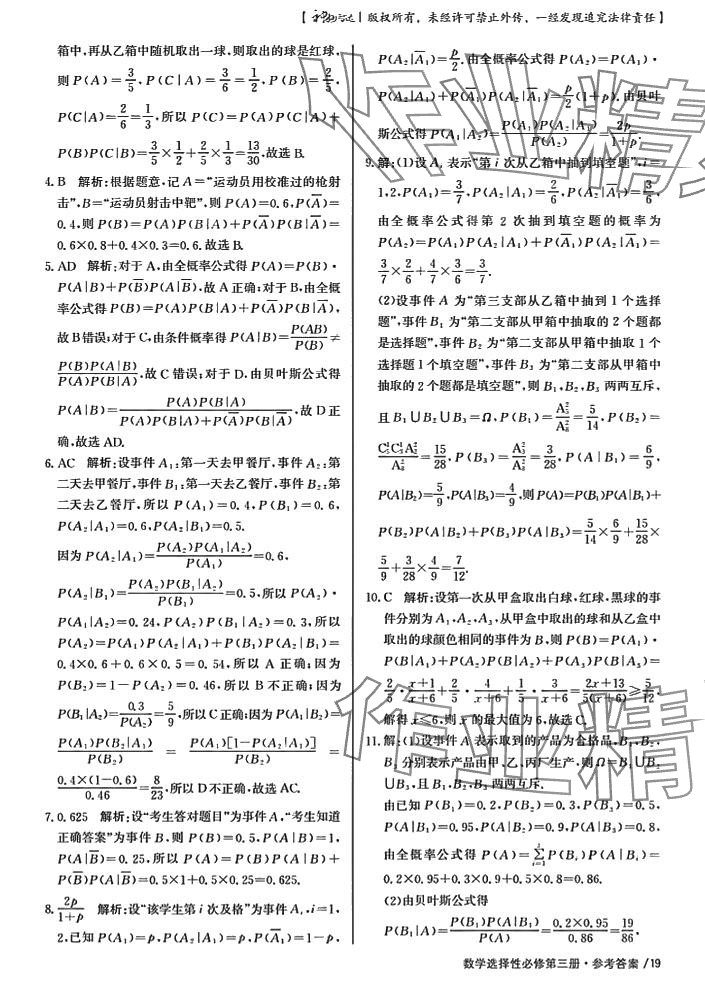 版权所有，未经许可禁止外传，一经发现追究法律责任】
箱中,再从乙箱中随机取出一球,则取出的球是红球,
则 P(A)=3/5,P(C|A)=3/6=1/2,P(B)=2/5,
P(C|A)=2/6=1/3,所以 P(C)=P(A)P(C|A)+
P(B)P(C|B)=3/5×1/2+2/5×1/3=13/30,故选 B.
4. B 解析:根据题意,记 A=“运动员用校准过的枪射
击”,B=“运动员射击中靶”,则 P(A)=0.6,P(A̅)=
0.4,则 P(B)=P(A)P(B|A)+P(A̅)P(B|A̅)=
0.6×0.8+0.4×0.3=0.6.故选 B.
5. AD 解析:对于 A,由全概率公式得 P(A)=P(B)·
P(A|B)+P(B̅)P(A|B̅),故 A 正确;对于 B,由全概
率公式得 P(B)=P(A)P(B|A)+P(A̅)P(B|A̅),
故 B 错误;对于 C,由条件概率得 P(A|B)=P(AB)/P(B)≠
P(B)P(A|B)/P(A)P(B|A),故 C 错误;对于 D,由贝叶斯公式得
P(A|B)=P(A)P(B|A)/P(A)P(B|A)+P(A̅)P(B|A̅),故 D 正
确,故选 AD.
6. AC 解析:设事件 A₁:第一天去甲餐厅,事件 A₂:第
二天去甲餐厅,事件 B₁:第一天去乙餐厅,事件 B₂:第
二天去乙餐厅,所以 P(A₁)=0.4,P(B₁)=0.6,
P(A₂|A₁)=0.6,P(A₂|B₁)=0.5.
因为 P(A₂|A₁)=P(A₂)P(A₁|A₂)/P(A₁)=0.6,
P(A₂|B₁)=P(A₂)P(B₁|A₂)/P(B₁)=0.5,所以 P(A₂)·
P(A₁|A₂)=0.24,P(A₂)P(B₁|A₂)=0.3,所以
P(A₂)=P(A₁)P(A₂|A₁)+P(B₁)P(A₂|B₁)=
0.4×0.6+0.6×0.5=0.54,所以 A 正确;因为
P(B₂)=1-P(A₂)=0.46,所以 B 不正确;因为
P(B₁|A₂)=0.3/P(A₂)=5/9,所以 C 正确;因为 P(A₁|B₂)=
P(A₁)P(B₂|A₁)/P(B₂)=P(A₁)[1-P(A₂|A₁)]/P(B₂)=
0.4×(1-0.6)/0.46=8/23,所以 D 不正确,故选 AC.
7. 0.625 解析:设“考生答对题目”为事件 A,“考生知道
正确答案”为事件 B,则 P(B)=0.5,P(A|B)=1,
P(A|B̅)=0.25,所以 P(A)=P(B)P(A|B)+
P(B̅)P(A|B̅)=0.5×1+0.5×0.25=0.625.
8. 2p/1+p 解析:设“该学生第 i 次及格”为事件 Aᵢ,i=1,
2,已知 P(A₁)=p,P(A₂|A₁)=p,P(A̅₁)=1-p,
P(A₂|A̅₁)=p/2.由全概率公式得 P(A₂)=P(A₁)·
P(A₂|A₁)+P(A̅₁)P(A₂|A̅₁)=p/2(1+p).由贝叶
斯公式得 P(A₁|A₂)=P(A₁)P(A₂|A₁)/P(A₂)=2p/1+p.
9. 解:(1)设 Aᵢ 表示“第 i 次从乙箱中抽到填空题”,i=
1,2,P(A₁)=3/7,P(A₂|A₁)=2/6,P(A₂|A̅₁)=3/6,
由全概率公式得第 2 次抽到填空题的概率为
P(A₂)=P(A₁)P(A₂|A₁)+P(A̅₁)P(A₂|A̅₁)=
3/7×2/6+4/7×3/6=3/7.
(2)设事件 A 为“第三支部从乙箱中抽到 1 个选择
题”,事件 B₁ 为“第二支部从甲箱中抽取的 2 个题都
是选择题”,事件 B₂ 为“第二支部从甲箱中抽取 1 个
选择题 1 个填空题”,事件 B₃ 为“第二支部从甲箱中
抽取的 2 个题都是填空题”,则 B₁,B₂,B₃ 两两互斥,
且 B₁∪B₂∪B₃=Ω,P(B₁)=A₅²/A₈²=5/14,P(B₂)=
C₅¹C₃¹A₂²/A₈²=15/28,P(B₃)=A₃²/A₈²=3/28,P(A|B₁)=6/9,
P(A|B₂)=5/9,P(A|B₃)=4/9,则 P(A)=P(B₁)P(A|B₁)+
P(B₂)P(A|B₂)+P(B₃)P(A|B₃)=5/14×6/9+15/28×
5/9+3/28×4/9=7/12.
10. C 解析:设第一次从甲盒取出白球,红球,黑球的事
件分别为 A₁,A₂,A₃,从甲盒中取出的球和从乙盒中
取出的球颜色相同的事件为 B,则 P(B)=P(A₁)·
P(B|A₁)+P(A₂)P(B|A₂)+P(A₃)P(B|A₃)=
2/5·x+1/x+6+2/5·4/x+6+1/5·3/x+6=2x+13/5(x+6)≥5/12,
解得 x≤6,则 x 的最大值为 6,故选 C.
11. 解:(1)设事件 A 表示取到的产品为合格品,B₁,B₂,
B₃ 分别表示产品由甲、乙、丙厂生产,则 Ω=B₁∪B₂
∪B₃,且 B₁,B₂,B₃ 两两互斥.
由已知 P(B₁)=0.2,P(B₂)=0.3,P(B₃)=0.5,
P(A|B₁)=0.95,P(A|B₂)=0.9,P(A|B₃)=0.8,
由全概率公式得 P(A)=∑ᵢ₌₁³P(Bᵢ)P(A|Bᵢ)=
0.2×0.95+0.3×0.9+0.5×0.8=0.86.
(2)由贝叶斯公式得
P(B₁|A)=P(B₁)P(A|B₁)/P(A)=0.2×0.95/0.86=19/86.
数学选择性必修第三册·参考答案/19
作业精灵
作业精灵